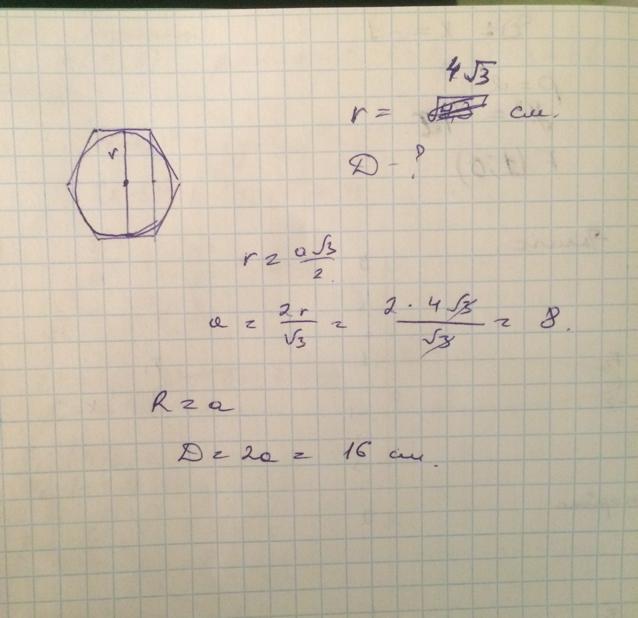 4√3
r = см.
D - ?
r
r = a√3/2
a = 2r/√3 = 2 · 4√3/√3 = 8.
R = a
D = 2a = 16 см.